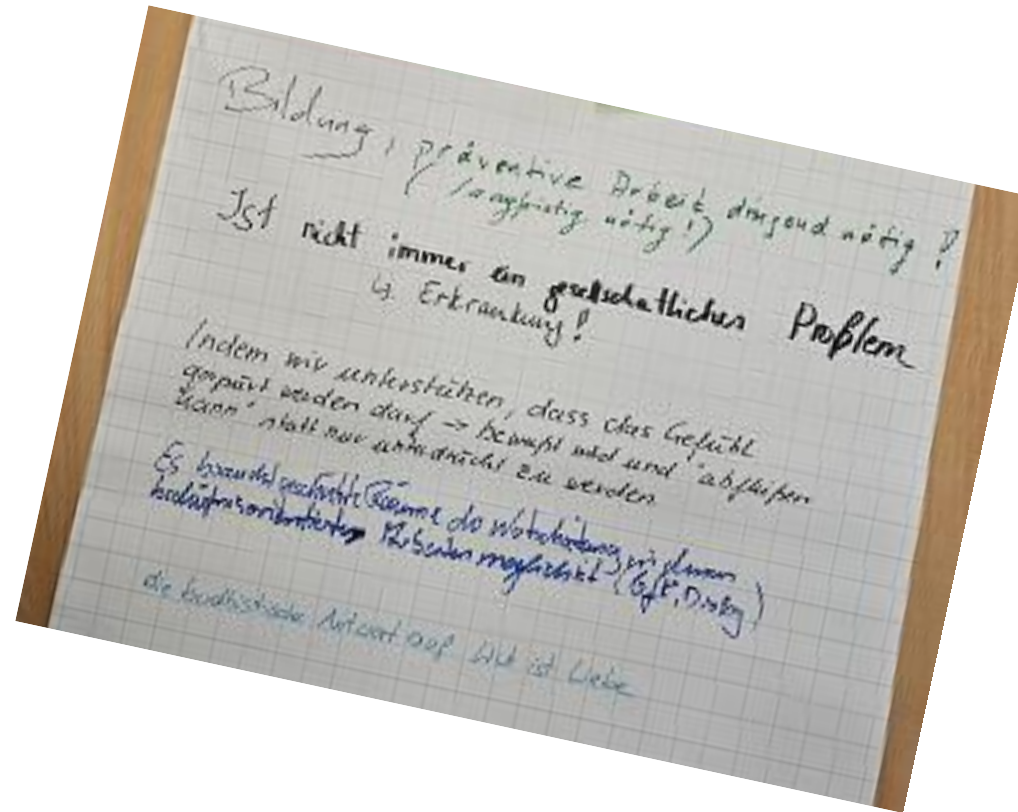 Bildung, präventive Arbeit dringend nötig!
(langfristig nötig!)
Ist nicht immer ein gesellschaftliches Problem
↳ Erkrankung!
Indem wir unterstützen, dass das Gefühl
gespürt werden darf → bewußt wird und "abfließen
kann" statt nur unterdrückt zu werden.
Es braucht geschützte Räume die Wertschätzung
bedürfnisorientiertem Arbeiten möglich (GfK, Dialog)
die buddhistische Antwort auf Wut ist Liebe